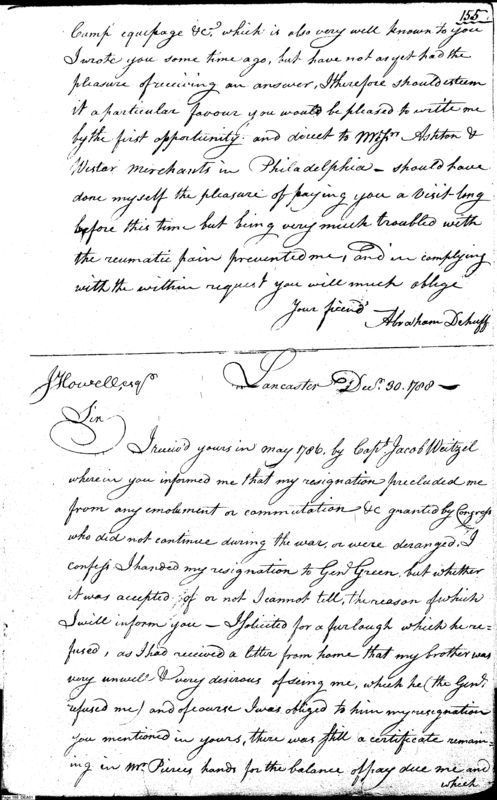 155
Camp equipage &c.ª which is also very well known to you
I wrote you some time ago, but have not as yet had the
pleasure of receiving an answer, I therefore should esteem
it a particular favour you would be pleased to write me
by the first opportunity and direct to Messrs Ashton &
Wistar Merchants in Philadelphia – should have
done myself the pleasure of paying you a visit long
before this time but being very much troubled with
the reumatic pain prevented me, and in complying
with the within request you will much oblige
Your friend
Abraham Dehuff
J Howell, esqr
Lancaster Decr. 30. 1788 –
Sir
I receiv'd yours in may 1786, by Capt. Jacob Weitzel
wherein you informed me that my resignation precluded me
from any emolument or commutation &c granted by Congress
who did not continue during the war, or were deranged, I
confess I handed my resignation to Genl Green, but whether
it was accepted of or not I cannot tell, the reason of which
I will inform you – I solicited for a furlough which he re-
fused, as I had received a letter from home that my brother was
very unwell & very desirous of seing me, which he (the Genl.
refused me) and of course I was obliged to him my resignation
you mentioned in yours, there was still a certificate remain-
ing in Mr. Pierces hands for the balance of pay due me and
which